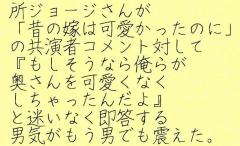 所ジョージさんが
「昔の嫁は可愛かったのに」
の共演者コメント対して
『もしそうなら俺らが
奥さんを可愛くなく
しちゃったんだよ』
と迷いなく即答する
男気がもう男でも震えた。